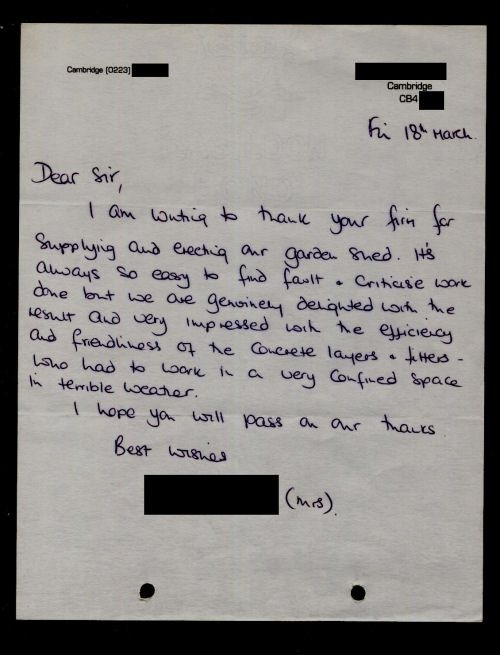 Cambridge (0223)
Cambridge
CB4
Fri 18th March.
Dear Sir,
I am writing to thank your firm for
supplying and erecting our garden shed. It's
always so easy to find fault & criticise work
done but we are genuinely delighted with the
result and very impressed with the efficiency
and friendliness of the concrete layers & fitters -
who had to work in a very confined space
in terrible weather.
I hope you will pass on our thanks.
Best wishes
(Mrs).